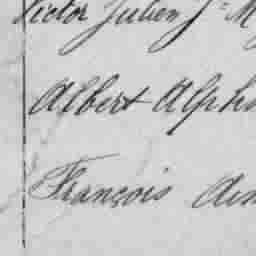 Victor Julien J= M
Albert Alph
François